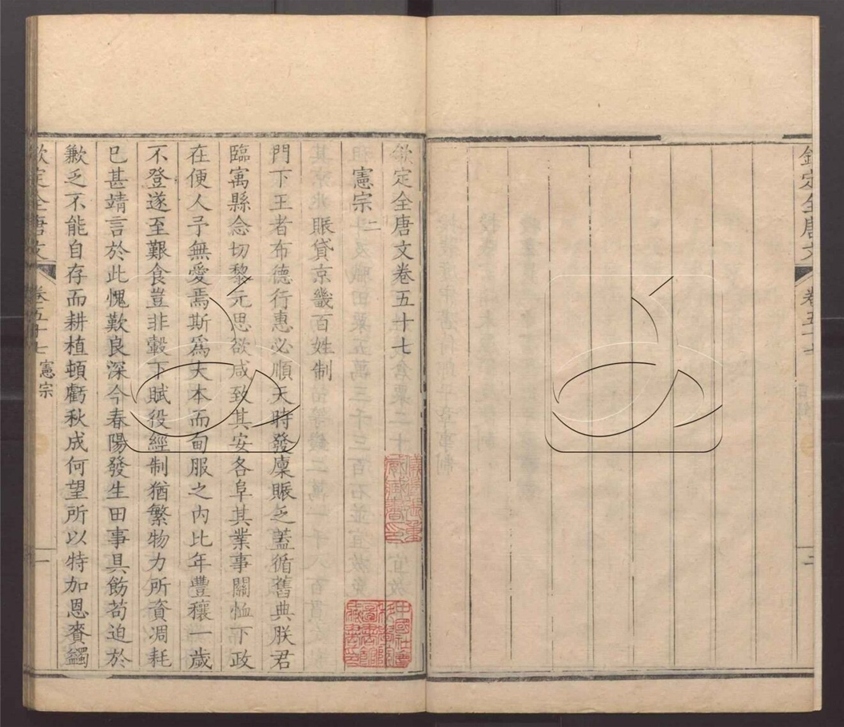 欽定全唐文
卷五十七
欽定全唐文卷五十七
憲宗二
賑貸京畿百姓制
門下王者布德行惠必順天時發廩賑乏蓋循舊典朕君
臨寓縣念切黎元思欲咸致其安各阜其業事關恤下政
在便人予無愛焉斯爲大本而甸服之內比年豐穰一歲
不登遂至艱食豈非轂下賦役經制猶繁物力所資凋耗
已甚靖言於此愧歎良深今春陽發生田事具飭苟迫於
歉乏不能自存而耕植頓虧秋成何望所以特加恩賚蠲
欽定全唐文
卷五十七
憲宗
一